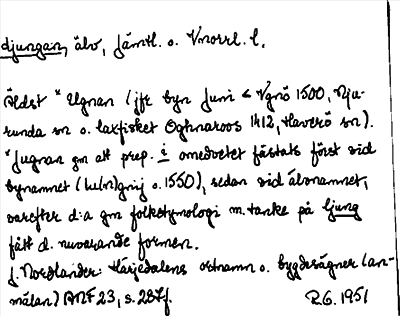 djungan, älv, Jämtl. o. Vnorrl. l.
Äldst *Ugnan (jfr byn Juni < Vgnö 1500, Nju-
runda sn o. laxfisket Oghnaroos 1412, Haverö sn).
*Jugnan gm att prep. i omedvetet fästats först vid
bynamnet ( o. 1550), sedan vid älvnamnet,
varefter d:a gm folketymologi m. tanke på ljung
fått d. nuvarande formen.
J. Nordlander Härjedalens ortnamn o. bygdesägner (an-
mälan) ANF 23, s. 287f. R.G. 1951